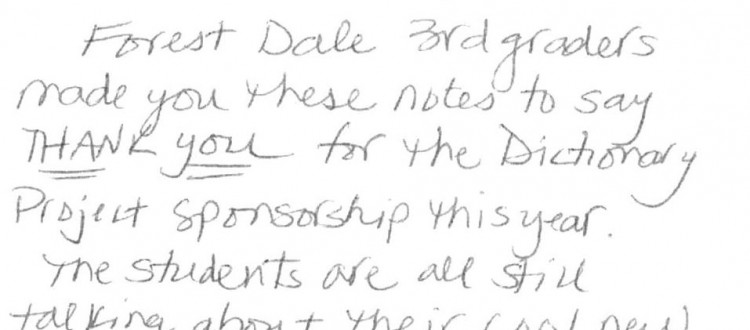 Forest Dale 3rd graders
made you these notes to say
THANK you for the Dictionary
Project sponsorship this year.
The students are all still
talking about their cool new